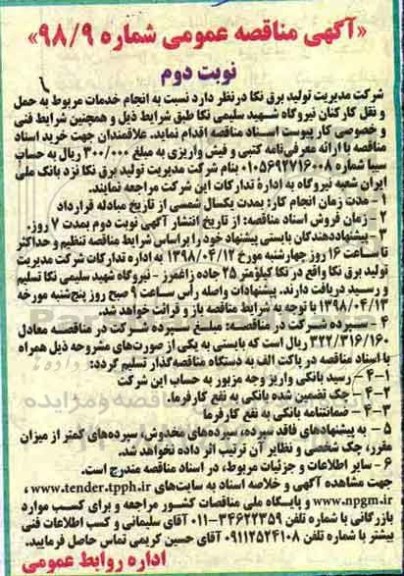 «آگهی مناقصه عمومی شماره ۹۸/۹»
نوبت دوم
شرکت مدیریت تولید برق نکا درنظر دارد نسبت به انجام خدمات مربوط به حمل
و نقل کارکنان نیروگاه شهید سلیمی نکا طبق شرایط ذیل و همچنین شرایط فنی
و خصوصی کار پیوست اسناد مناقصه اقدام نماید. علاقمندان جهت خرید اسناد
مناقصه با ارائه معرفی‌نامه کتبی و فیش واریزی به مبلغ ۳۰۰/۰۰۰ ریال به حساب
سیبا شماره ۰۱۰۵۶۹۲۷۱۶۰۰۸ بنام شرکت مدیریت تولید برق نکا نزد بانک ملی
ایران شعبه نیروگاه به اداره تدارکات این شرکت مراجعه نمایند.
۱- مدت زمان انجام کار: بمدت یکسال شمسی از تاریخ مبادله قرارداد
۲- زمان فروش اسناد مناقصه: از تاریخ انتشار آگهی نوبت دوم بمدت ۷ روز.
۳- پیشنهاددهندگان بایستی پیشنهاد خود را براساس شرایط مناقصه تنظیم و حداکثر
تا ساعت ۱۶ روز چهارشنبه مورخ ۱۳۹۸/۰۴/۱۲ به اداره تدارکات شرکت مدیریت
تولید برق نکا واقع در نکا کیلومتر ۲۵ جاده زاغمرز - نیروگاه شهید سلیمی نکا تسلیم
و رسید دریافت دارند. پیشنهادات واصله رأس ساعت ۹ صبح روز پنج‌شنبه مورخه
۱۳۹۸/۰۴/۱۳ با توجه به شرایط مناقصه باز و قرائت خواهد شد.
۴- سپرده شرکت در مناقصه: مبلغ سپرده شرکت در مناقصه معادل
۳۲۲/۳۱۶/۱۶۰ ریال است که بایستی به یکی از صورت‌های مشروحه ذیل همراه
با اسناد مناقصه در پاکت الف به دستگاه مناقصه‌گذار تسلیم گردد:
۴-۱- رسید بانکی واریز وجه مزبور به حساب این شرکت
۴-۲- چک تضمین شده بانکی به نفع کارفرما.
۴-۳- ضمانتنامه بانکی به نفع کارفرما
۵- به پیشنهادهای فاقد سپرده، سپرده‌های مخدوش، سپرده‌های کمتر از میزان
مقرر، چک شخصی و نظایر آن ترتیب اثر داده نخواهد شد.
۶- سایر اطلاعات و جزئیات مربوط، در اسناد مناقصه مندرج است.
جهت مشاهده آگهی و خلاصه اسناد به سایت‌های www.tender.tpph.ir ،
www.npgm.ir و پایگاه ملی مناقصات کشور مراجعه و برای کسب موارد
بازرگانی با شماره تلفن ۳۴۶۲۲۳۵۹-۰۱۱ آقای سلیمانی و کسب اطلاعات فنی
بیشتر با شماره تلفن ۰۹۱۱۲۵۲۴۱۰۸ آقای حسین کریمی تماس حاصل فرمایید.
اداره روابط عمومی